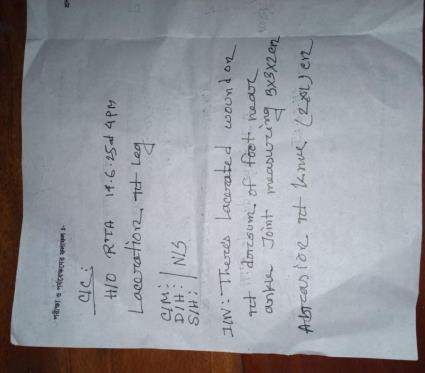 পরীক্ষা ও পর্যবেক্ষণের ফলাফল ঃ-
C/C:
H/O RTA 17.6.25 at 4 PM
Laceration, rt Leg
C/M:
D/H: | N/S
S/H:
I/N: Theres Lacerated wound on
rt dorsum of foot near
ankle Joint measuring 5x3x2cm
Abrasion rt knee (2x1) cm